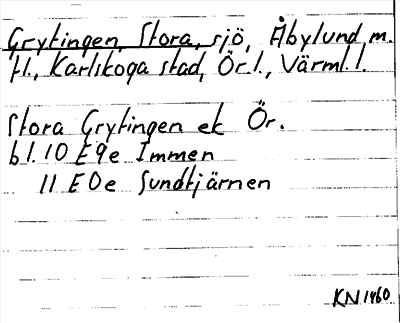 Grytingen, Stora, sjö, Åbylund m.
fl., Karlskoga stad, Ör.l., Värml.l.
Stora Grytingen ek Ör.
bl. 10 E9e Immen
11 E0e Sundtjärnen
KN 1960